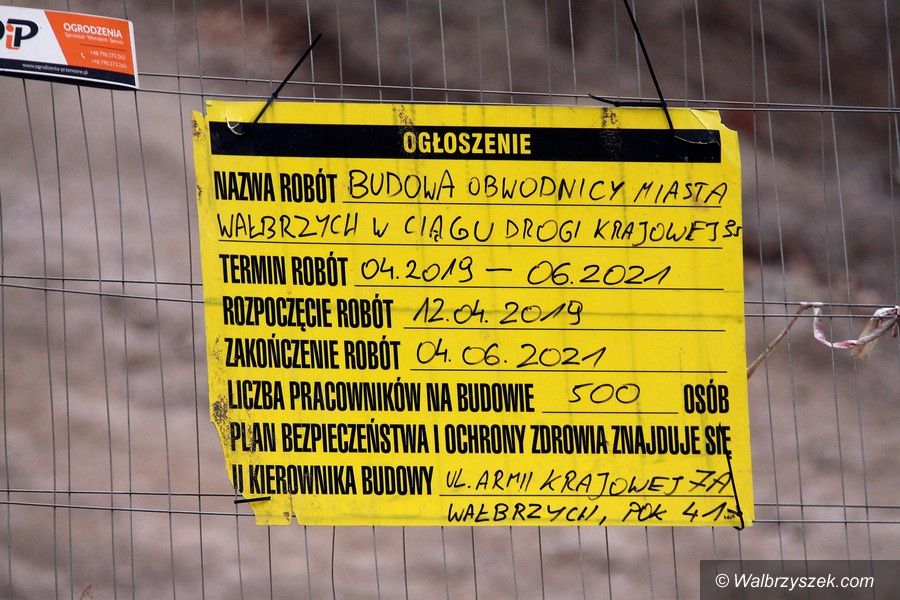 iP
OGRODZENIA
Sprzedaż · Wynajem · Serwis
+48 790 273 262
+48 790 273 260
www.ogrodzenia-przenosne.pl
OGŁOSZENIE
NAZWA ROBÓT BUDOWA OBWODNICY MIASTA
WAŁBRZYCH W CIĄGU DROGI KRAJOWEJ 35
TERMIN ROBÓT 04.2019 – 06.2021
ROZPOCZĘCIE ROBÓT 12.04.2019
ZAKOŃCZENIE ROBÓT 04.06.2021
LICZBA PRACOWNIKÓW NA BUDOWIE 500 OSÓB
PLAN BEZPIECZEŃSTWA I OCHRONY ZDROWIA ZNAJDUJE SIĘ
U KIEROWNIKA BUDOWY UL. ARMII KRAJOWEJ 7A
WAŁBRZYCH, POK 41
© Walbrzyszek.com